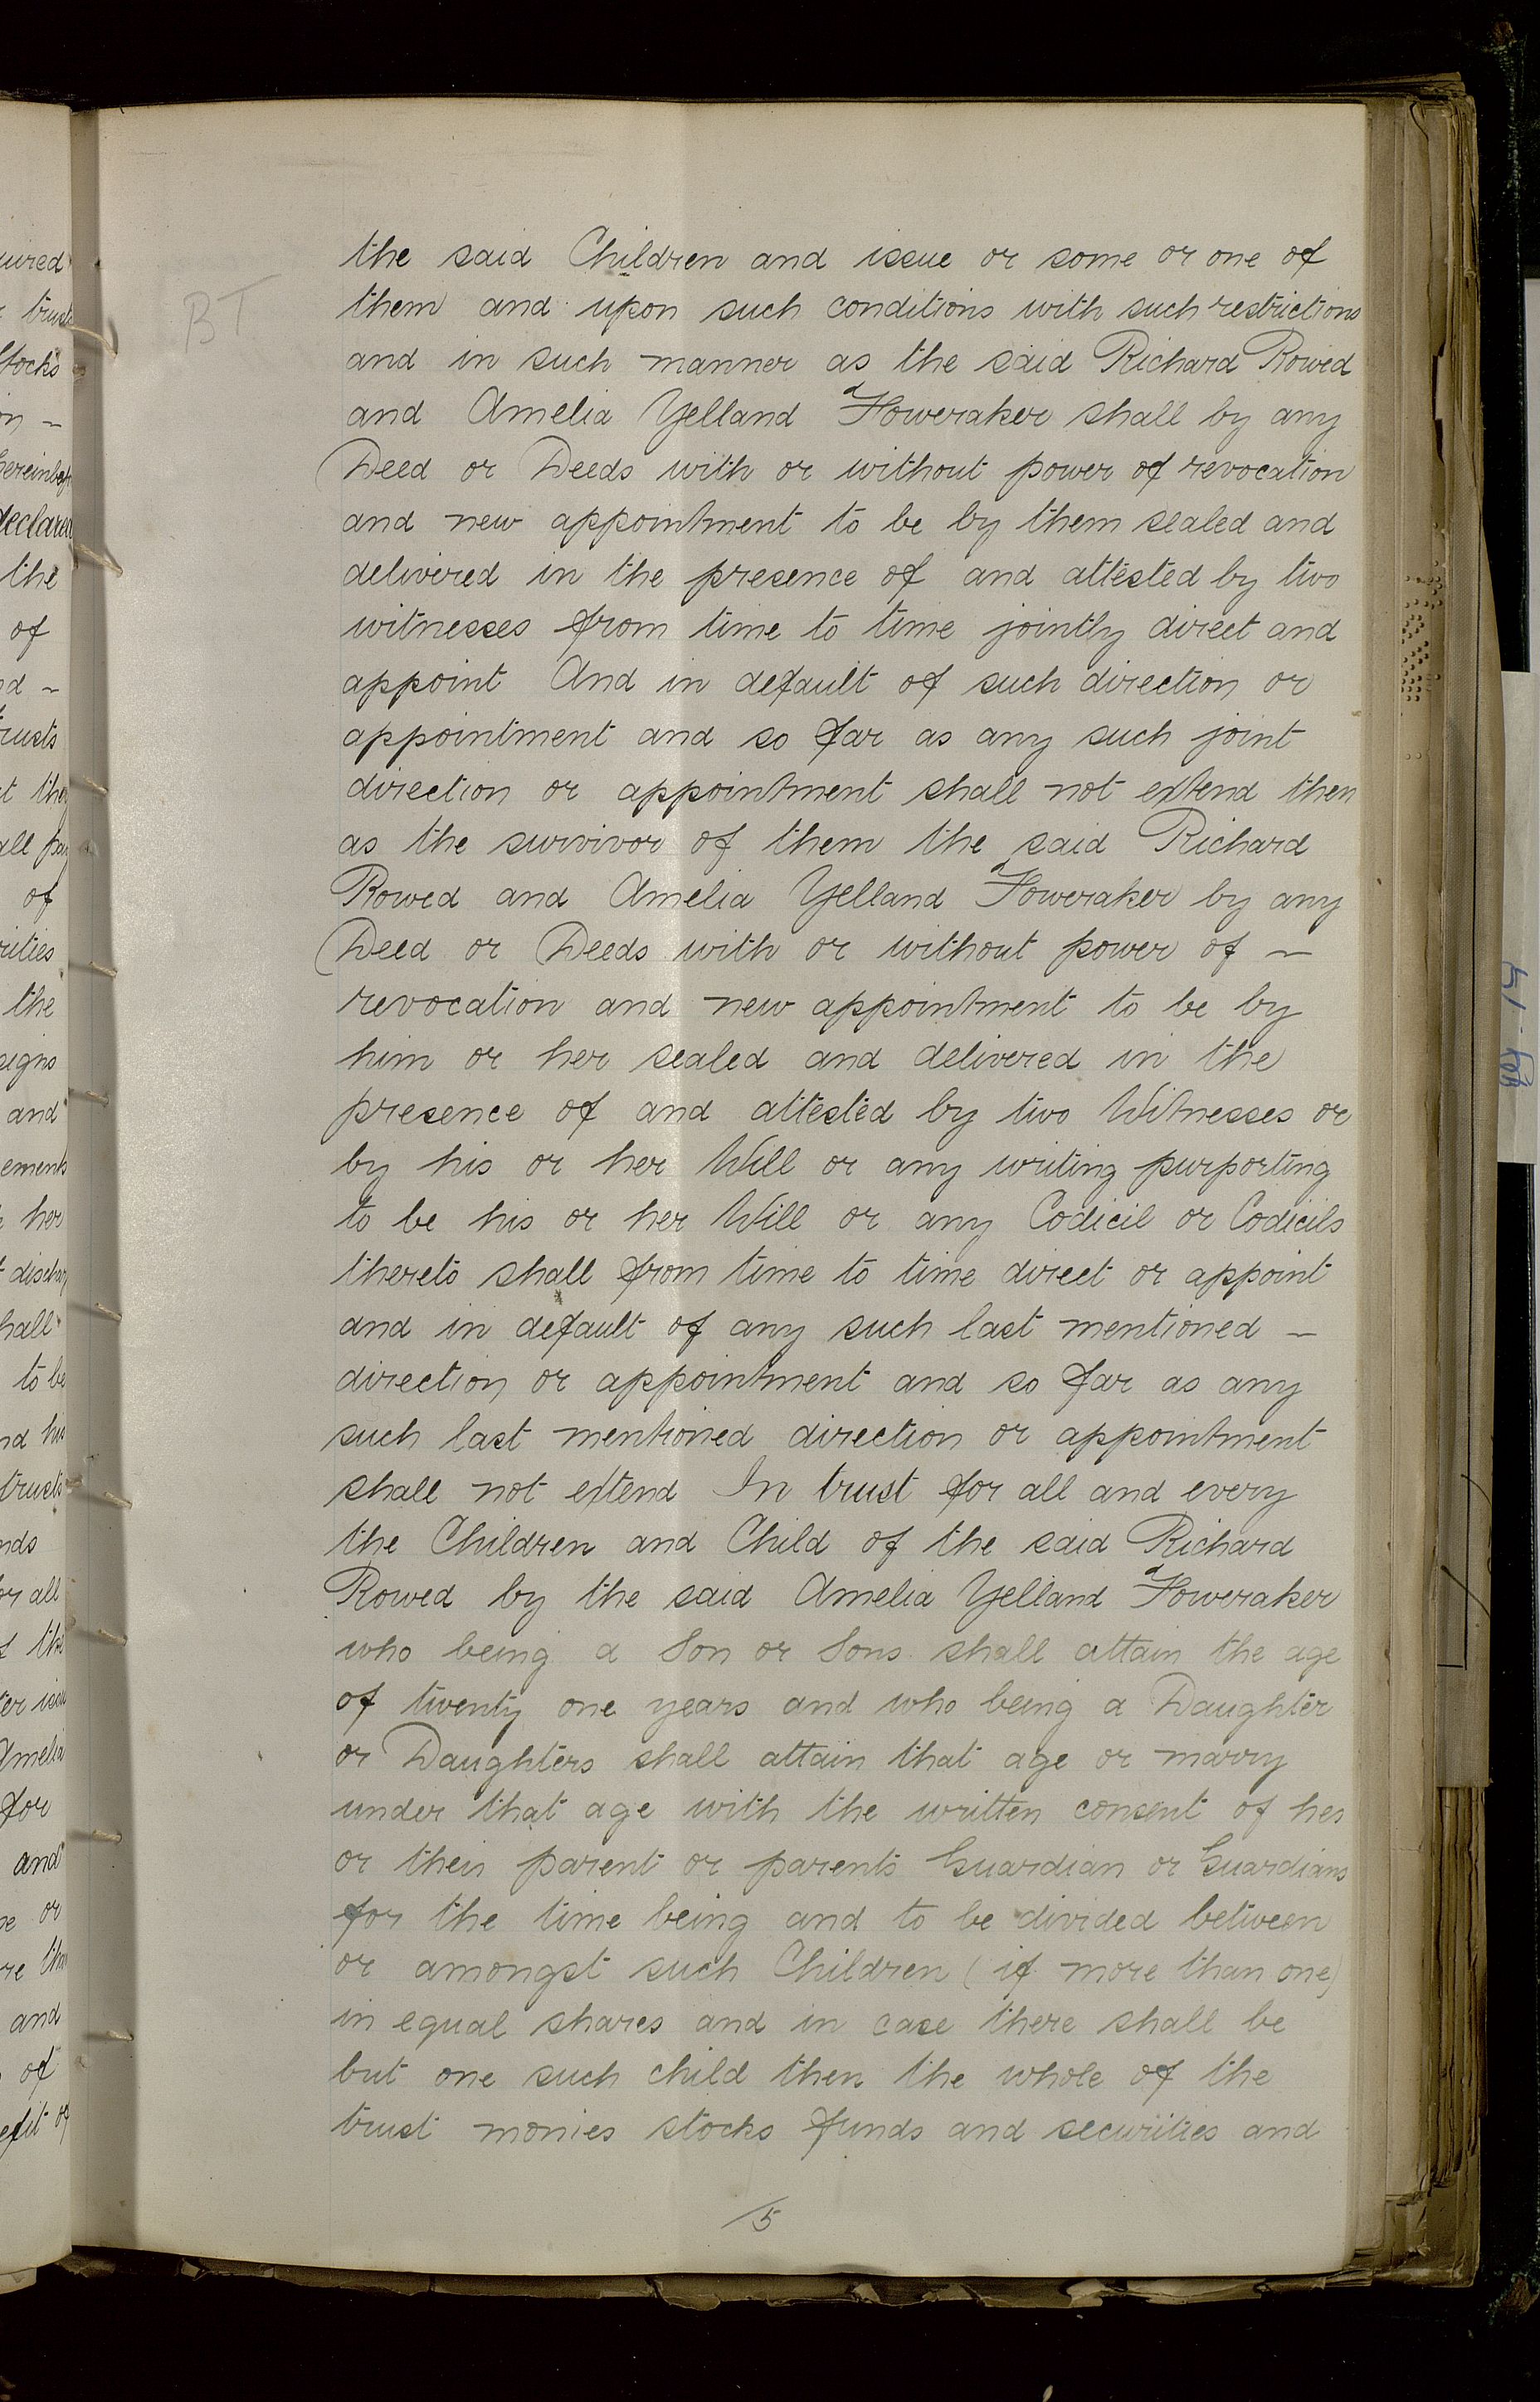 BT
the said Children and issue or some or one of
them and upon such conditions with such restrictions
and in such manner as the said Richard Rowed
and Amelia Yelland Foweraker shall by any
Deed or Deeds with or without power of revocation
and new appointment to be by them sealed and
delivered in the presence of and attested by two
witnesses from time to time jointly direct and
appoint And in default of such direction or
appointment and so far as any such joint
direction or appointment shall not extend then
as the survivor of them the said Richard
Rowed and Amelia Yelland Foweraker by any
Deed or Deeds with or without power of ~
revocation and new appointment to be by
him or her sealed and delivered in the
presence of and attested by two Witnesses or
by his or her Will or any writing purporting
to be his or her Will or any Codicil or Codicils
thereto shall from time to time direct or appoint
and in default of any such last mentioned ~
direction or appointment and so far as any
such last mentioned direction or appointment
shall not extend In trust for all and every
the Children and Child of the said Richard
Rowed by the said Amelia Yelland Foweraker
who being a Son or Sons shall attain the age
of twenty one years and who being a Daughter
or Daughters shall attain that age or marry
under that age with the written consent of her
or their parent or parents Guardian or Guardians
for the time being and to be divided between
or amongst such Children (if more than one)
in equal shares and in case there shall be
but one such child then the whole of the
trust monies stocks funds and securities and
5